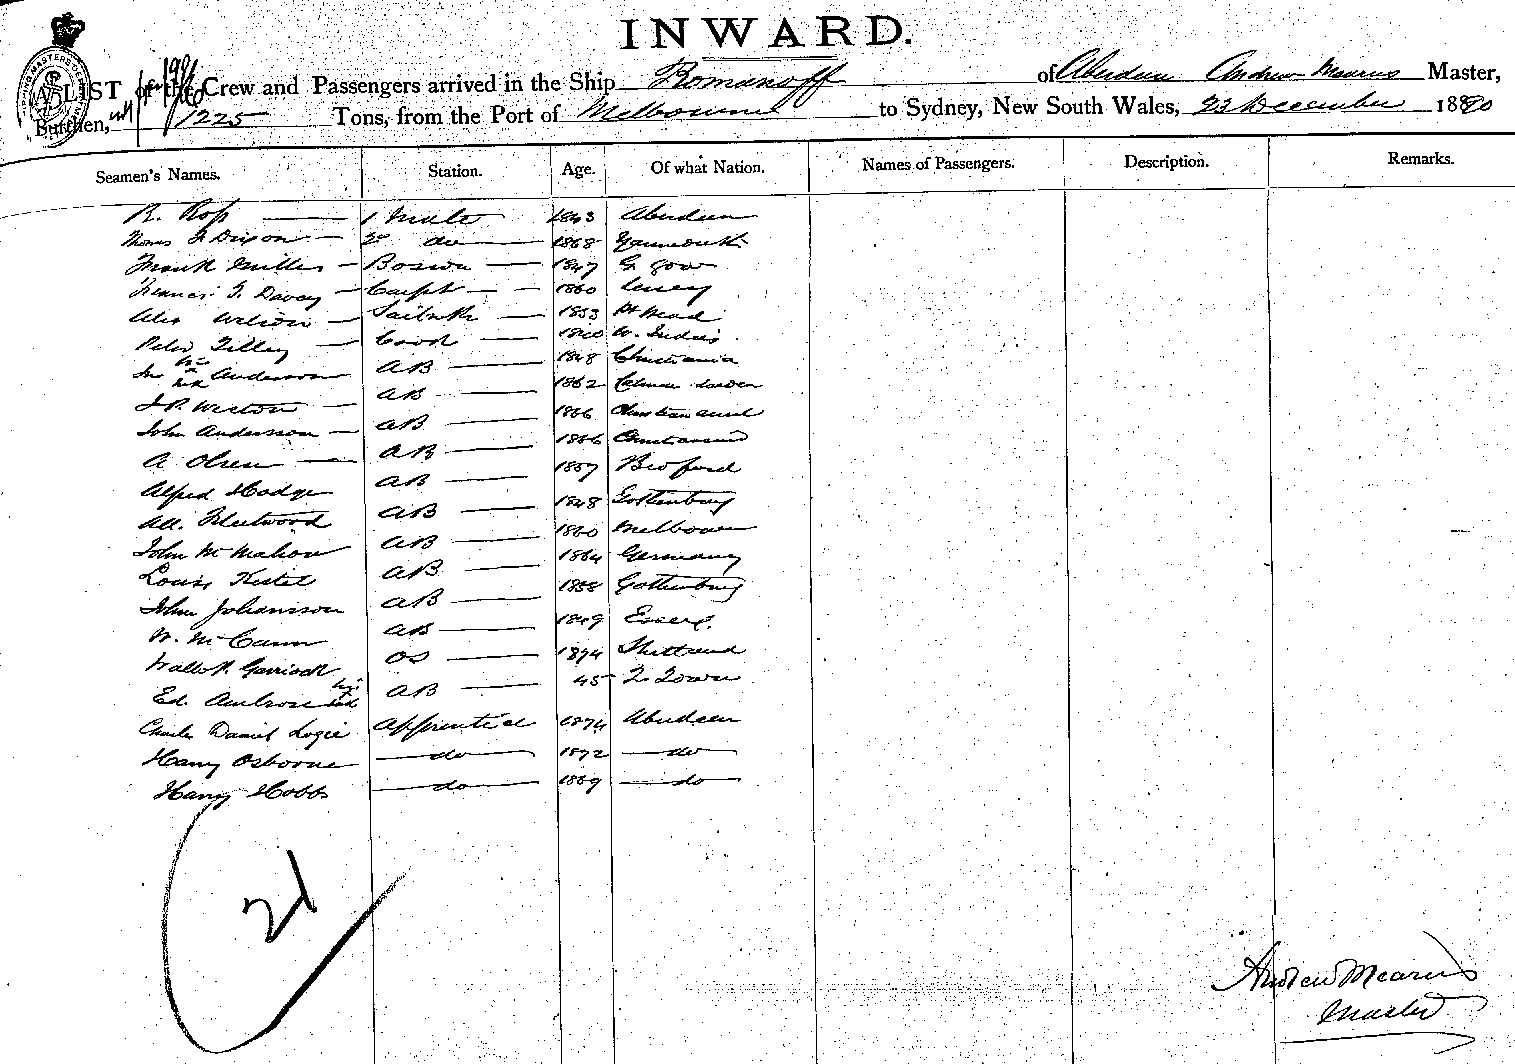 INWARD.
A LIST of the Crew and Passengers arrived in the Ship Romanoff of Aberdeen Andrew Mearns Master,
Burthen, 1225 Tons, from the Port of Melbourne to Sydney, New South Wales, 23 December 1880
Seamen's Names. Station. Age. Of what Nation. Names of Passengers. Description. Remarks.
R. Ross 1 Mate 1843 Aberdeen
Thomas Dixon 2nd do 1868 Yarmouth
Frank Miller Bosun 1847 Ggow
Francis G. Davey Carpt 1860
Alex Wilson Sailmkr 1853 Pt Mead
Peter Tilley Cook 1840 W. Indies
Jn Anderson AB 1848 Christiania
J. P. Weston AB 1862
John Anderson AB 1866 Christiansund
A Olsen AB 1866
Alfred Hodge AB 1857 Bedford
Fleetwood AB 1848 Gottenburg
John McMahon AB 1860 Melbourne
Louis Kestel AB 1864 Germany
John Johansson AB 1858 Gottenburg
W. McCann AB 1849 Essex.
Garriock OS 1874 Shetland
Ed. Ambrose AB 45 Town
Charles Daniel Logie Apprentice 1874 Aberdeen
Harry Osborne do 1872 do
Harry Hobbs do 1869 do
21
Andrew Mearns
Master